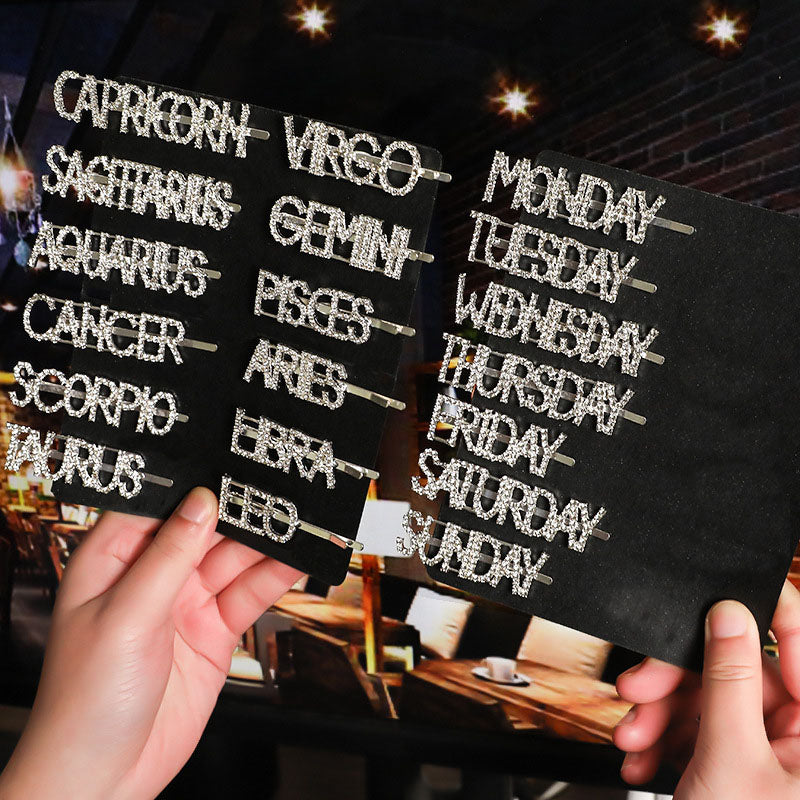 CAPRICORN
SAGITTARIUS
AQUARIUS
CANCER
SCORPIO
TAURUS
VIRGO
GEMINI
PISCES
ARIES
LIBRA
LEO
MONDAY
TUESDAY
WEDNESDAY
THURSDAY
FRIDAY
SATURDAY
SUNDAY